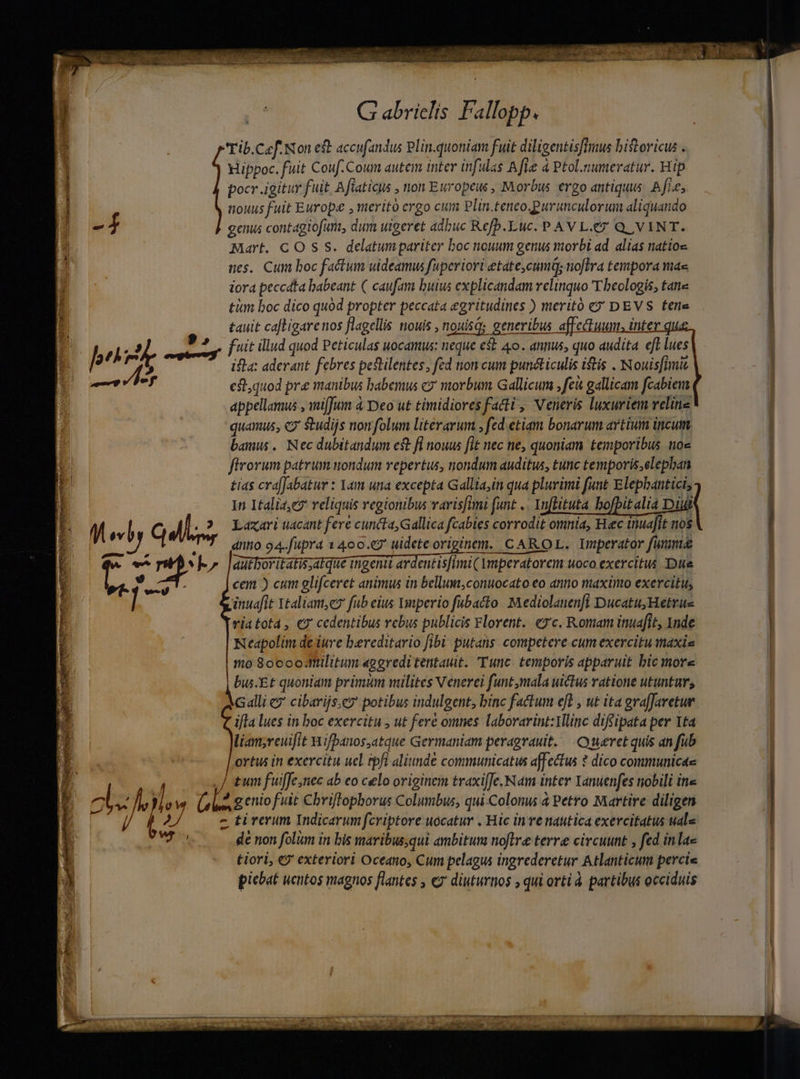 Gabrielis Fallopp.
Tib.Cæſ. Non eſt accuſandus Plin.quoniam fuit diligentiſſimus hiſtoricus .
Hippoc. fuit Couſ.Coum autem inter inſulas Aſiæ à Ptol.numeratur. Hip
pocr.igitur fuit Aſiaticus , non Europeus , Morbus ergo antiquus Aſiæ,
nouus fuit Europæ , meritò ergo cum Plin.teneo.purunculorum aliquando
genus contagioſum, dum uigeret adhuc Reſp.Luc. PAVL.& QVINT.
Mart. COSS. delatum pariter hoc nouum genus morbi ad alias natio=
nes. Cum hoc factum uideamus ſuperiori ætate,cumq; noſtra tempora ma=
iora peccata habeant ( cauſam huius explicandam relinquo Theologis, tan=
tùm hoc dico quòd propter peccata ægritudines ) meritò & DEVS ten=
tauit caſtigare nos flagellis nouis , nouisq; generibus affectuum, inter quæ
fuit illud quod Peticulas uocamus: neque eſt 40. annus, quo audita eſt lues
iſta: aderant febres peſtilentes, ſed non cum puncticulis iſtis . Nouiſſimū
eſt,quod præ manibus habemus & morbum Gallicum ,ſeu gallicam ſcabiem
appellamus , miſſum à Deo ut timidiores facti , Veneris luxuriem relin=
quamus, & ſtudijs non ſolum literarum , ſed etiam bonarum artium incum
bamus . Nec dubitandum eſt ſi nouus ſit nec ne, quoniam temporibus no=
ſtrorum patrum nondum repertus, nondum auditus, tunc temporis,elephan
tias craſſabatur : Iam una excepta Gallia,in qua plurimi ſunt Elephantici,
In Italia,& reliquis regionibus rariſſimi ſunt . Inſtituta hoſpitalia Diui
Lazari uacant ferè cuncta,Gallica ſcabies corrodit omnia, Hæc inuaſit nos
anno 94.ſupra 1400.& uidete originem. CAROL. Imperator ſummæ
authoritatis,atque ingenii ardentiſſimi(Imperatorem uoco exercitus Du=
cem ) cum gliſceret animus in bellum,conuocato eo anno maximo exercitu,
inuaſit Italiam,& ſub eius Imperio ſubacto Mediolanenſi Ducatu,Hetru=
ria tota , & cedentibus rebus publicis Florent. &c. Romam inuaſit, Inde
Neapolim de iure hæreditario ſibi putans competere cum exercitu maxi=
mo 80000.militum aggredi tentauit. Tunc temporis apparuit hic mor=
bus.Et quoniam primùm milites Venerei ſunt,mala uictus ratione utuntur,
Galli & cibarijs,& potibus indulgent, hinc factum eſt , ut ita graſſaretur
iſta lues in hoc exercitu , ut ferè omnes laborarint:Illinc diſſipata per Ita
liam,reuiſit Hiſpanos,atque Germaniam peragrauit. Quæret quis an ſub
ortus in exercitu uel ipſi aliunde communicatus affectus ? dico communica=
tum fuiſſe,nec ab eo cælo originem traxiſſe.Nam inter Ianuenſes nobili in=
genio fuit Chriſtophorus Columbus, qui Colonus à Petro Martire diligen
ti rerum Indicarum ſcriptore uocatur . Hic in re nautica exercitatus ual=
de non ſolùm in his maribus,qui ambitum noſtræ terræ circuunt , ſed in la=
tiori, & exteriori Oceano, Cum pelagus ingrederetur Atlanticum perci=
piebat uentos magnos flantes , & diuturnos , qui orti à partibus occiduis
Morby Gallic?